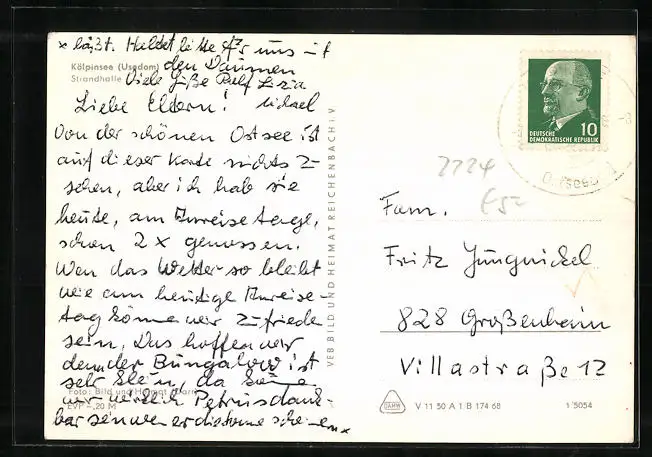 x läßt. Haltet bitte für uns mit
den Daumen
Kölpinsee (Usedom)
Strandhalle
Viele Grüße
Michael
Liebe Eltern!
Von der schönen Ostsee ist
auf dieser Karte nichts z-
sehen, aber ich hab sie
heute, am Anreisetage,
schon 2 x genossen.
Wenn das Wetter so bleibt
wie am heutige Anreise-
tag können wir zufriede
sein. Das hoffen wir
denn der Bungalow ist
sehr klein, da
wir wirklich Petrus dank-
bar sein wenn er die Sonne scheinen x
Foto: Bild und Heimat
EVP -,20 M
VEB BILD UND HEIMAT REICHENBACH i. V
DEUTSCHE
DEMOKRATISCHE REPUBLIK
10
2224
£5-
Fam.
Fritz Jungnickel
828 Großenhain
Villastraße 12
V 11 50 A 1 B 174 68
1/5054